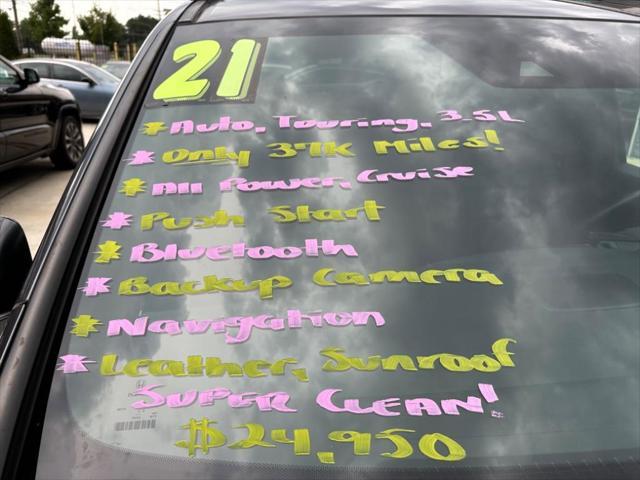 21
* Auto, Touring, 3.5L
* Only 37K Miles!
* All Power, Cruise
* Push Start
* Bluetooth
* Backup Camera
* Navigation
* Leather, Sunroof
SUPER CLEAN!
$24,950